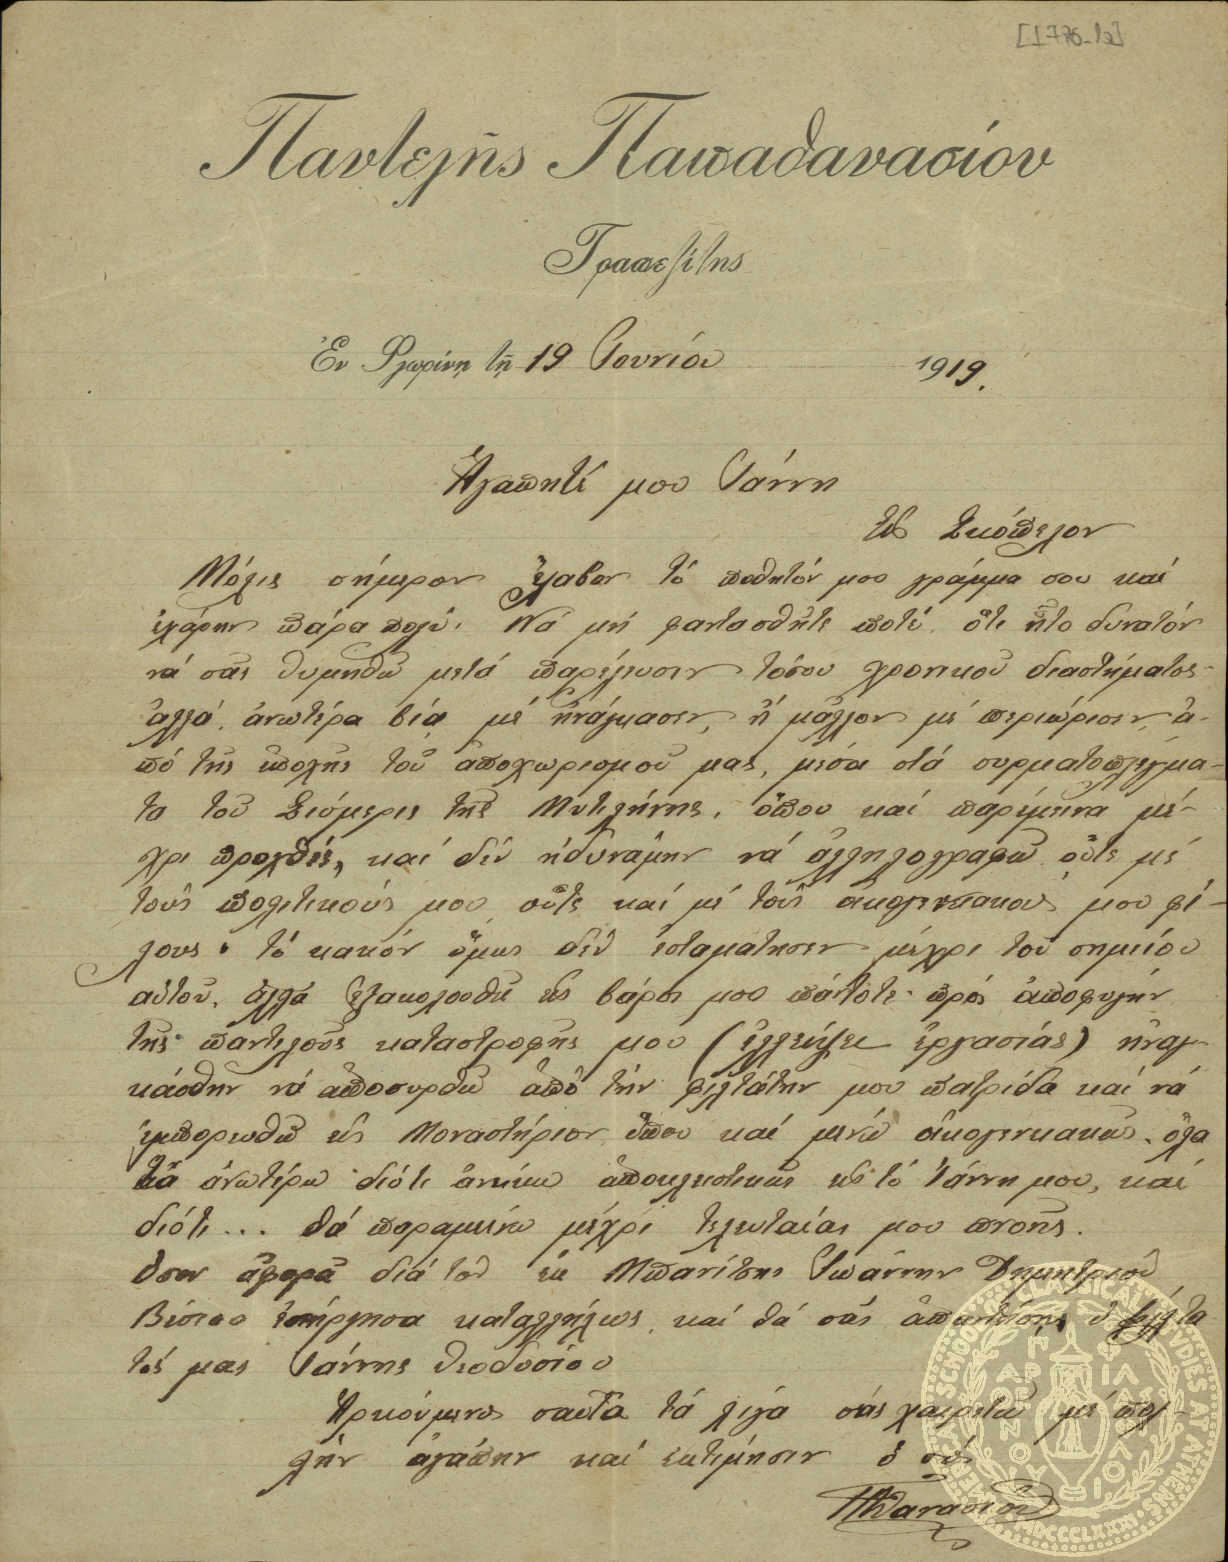 [1776-1a]
Παντελῆς Παπαθανασίου
Τραπεζίτης
Ἐν Φλωρίνῃ τῇ 19 Ἰουνίου 1919.
Ἀγαπητέ μου Γιάννη
εἰς Σκόπελον
Μόλις σήμερον ἔλαβον τό ποθητόν μου γράμμα σου καί
ἐχάρην πάρα πολύ. Νά μή φαντασθῆτε ποτέ ὅτι ἦτο δυνατόν
νά σᾶς θυμηθῶ μετά παρέλευσιν τόσου χρονικοῦ διαστήματος
ἀλλά ἀνωτέρα βία μέ ἠνάγκασεν, ἤ μᾶλλον μέ περιώρισεν ἀ-
πό τῆς ἐποχῆς τοῦ ἀποχωρισμοῦ μας, μέσα στά συρματοπλέγμα-
τα τοῦ τῆς Μυτιλήνης, ὅπου καί παρέμεινα μέ-
χρι προχθές, καί δέν ἠδυνάμην νά ἀλληλογραφῶ οὔτε μέ
τούς πολιτικούς μου οὔτε καί μέ τούς οἰκογενειακούς μου φί-
λους. τό κακόν ὅμως δέν ἐσταμάτησεν μέχρι τοῦ σημείου
αὐτοῦ, ἀλλά ἐξακολουθεῖ εἰς βάρος μου πάντοτε πρός ἀποφυγήν
τῆς παντελοῦς καταστροφῆς μου (ἐλλείψει ἐργασίας) ἠναγ-
κάσθην νά ἀποσυρθῶ ἀπό τήν φιλτάτην μου πατρίδα καί νά
ἐμπορευθῶ εἰς Μοναστήριον ὅπου καί μένω οἰκογενειακῶς. ὅλα
τά ἀνωτέρω διότι ἀνήκω ἀποκλειστικῶς εἰς τό Γιάννη μου, καί
διότι... θά παραμείνω μέχρι τελευταίας μου πνοῆς.
Ὅσον ἀφορᾶ διά τόν ἐκ Μπανίτσης Ἰωάννην Δημητρίου
ἐνήργησα καταλλήλως καί θά σᾶς ἀπαντήσῃ ὁ φίλτα
τός μας Γιάννης Θεοδοσίου
Ἀρκούμενος σαὐτά τά λίγα σᾶς χαιρετῶ μέ πολ-
λήν ἀγάπην καί ἐκτίμησιν ὁ σός
ΠΠαθανασίου
AMERICAN SCHOOL OF CLASSICAL STUDIES AT ATHENS
MDCCCLXXXI